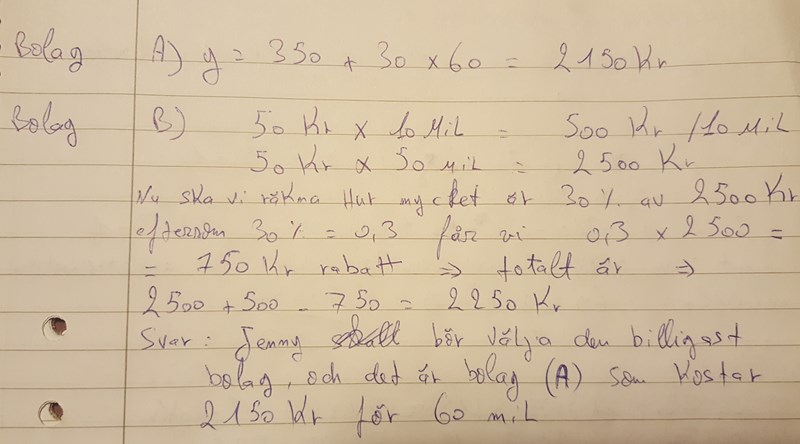 Bolag A) y = 350 + 30 × 60 = 2150 Kr
Bolag B) 50 Kr × 10 Mil = 500 Kr /10 Mil
50 Kr × 50 mil = 2500 Kr
Nu ska vi räkma Hur mycket är 30% av 2500 Kr
eftersom 30% = 0,3 får vi 0,3 × 2500 =
= 750 Kr rabatt ⇒ totalt är ⇒
2500 + 500 - 750 = 2250 Kr
Svar: Jenny bör välja den billigast
bolag, och det är bolag (A) som Kostar
2150 Kr för 60 mil